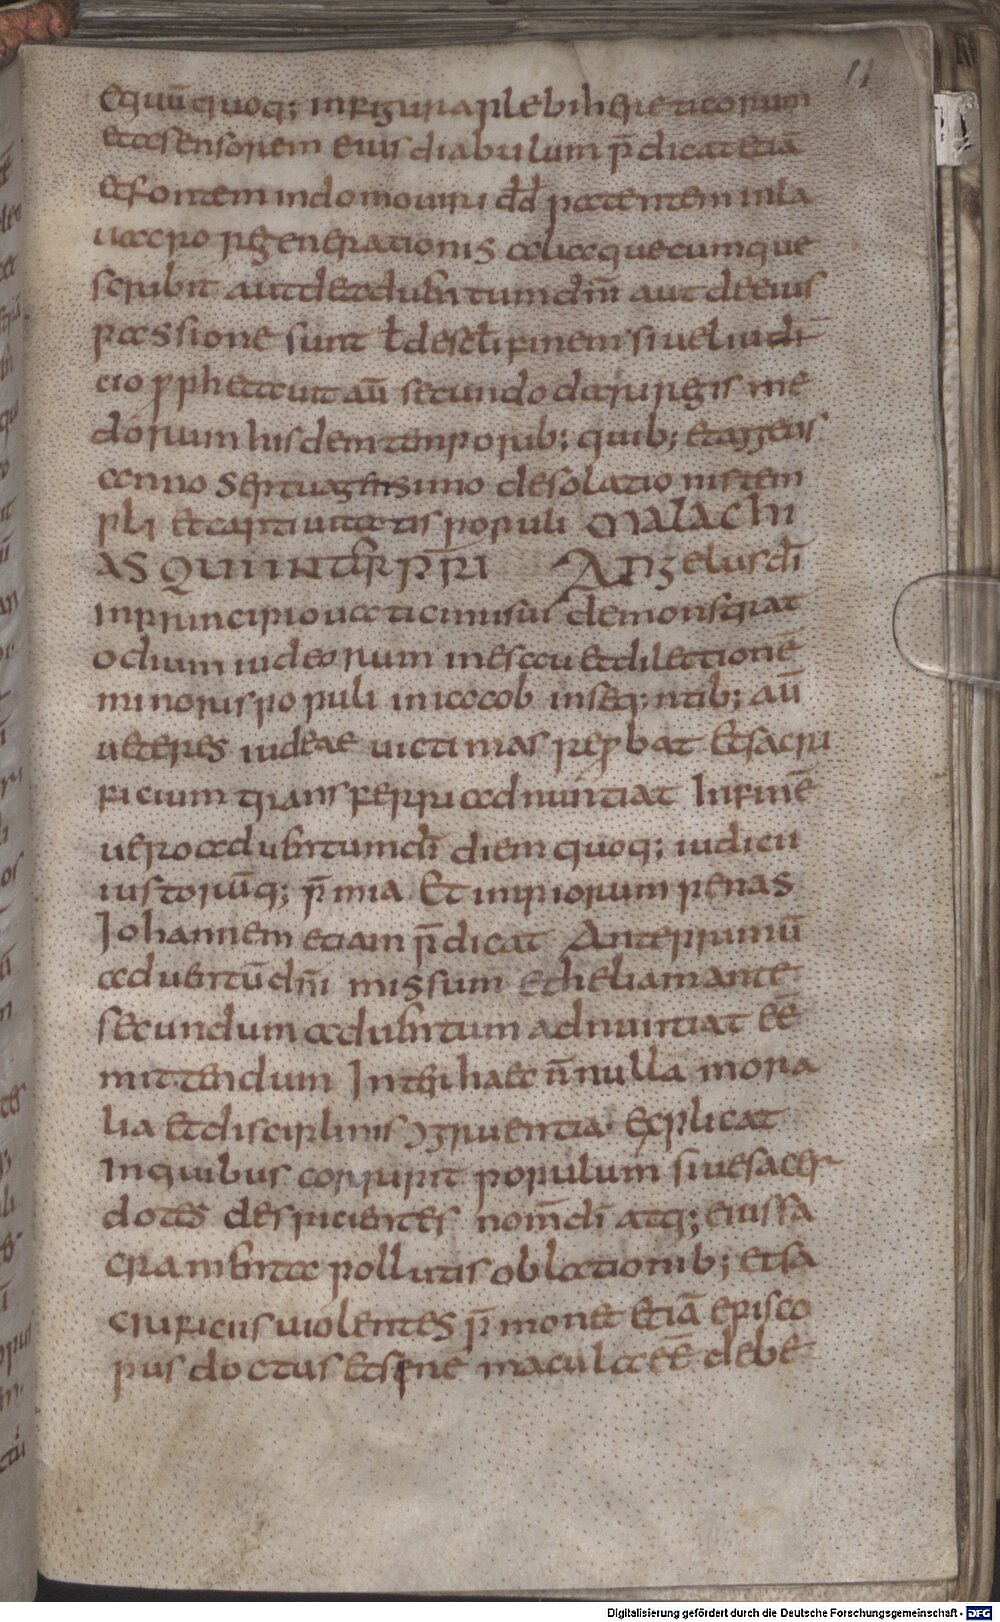 11
equū quoq; in figura plebi hereticorum
et ascensorem eius diabulum p̄dicat etiā
et fontem in domo uiri dd̄ patentem in la
uacro regenerationis alia quecumque
scribit aut de aduentum dn̄i aut de eius
passione sunt ł de sc̄li finem siue l iudi
cio prophetauit aū secundo darii regis me
dorum hisdem temporib; quib; et aggeus
anno septuagensimo desolationis tem
pli et captiuitatis populi Malachi
as quii interp̄ri Angelus dī
in principio uaticinii sui demonstrat
odium iudeorum in esau et dilectionē
minoris populi in iacob in seq;ntib; aū
ueteres iudeae uictimas reprobat et sacri
ficium transferri adnuntiat In finē
uero aduentum dī diem quoq; iudicii
iustorūq; p̄mia et impiorum penas
Johannem etiam p̄dicat Ante primū
aduentū dn̄i missum et heliam ante
secundum aduentum adnuntiat eē
mittendum Inter haec n̄nulla mora
lia et disciplinis ɔgruentia explicat
In quibus corripit populum siue sacer
dotes despicientes nom̄ dī atq; eius sa
cramenta pollutis oblationib; et sa
crificiis uiolentes p̄monet etiā episco
pus doctus et sine macula eē debe
Digitalisierung gefördert durch die Deutsche Forschungsgemeinschaft - DFG